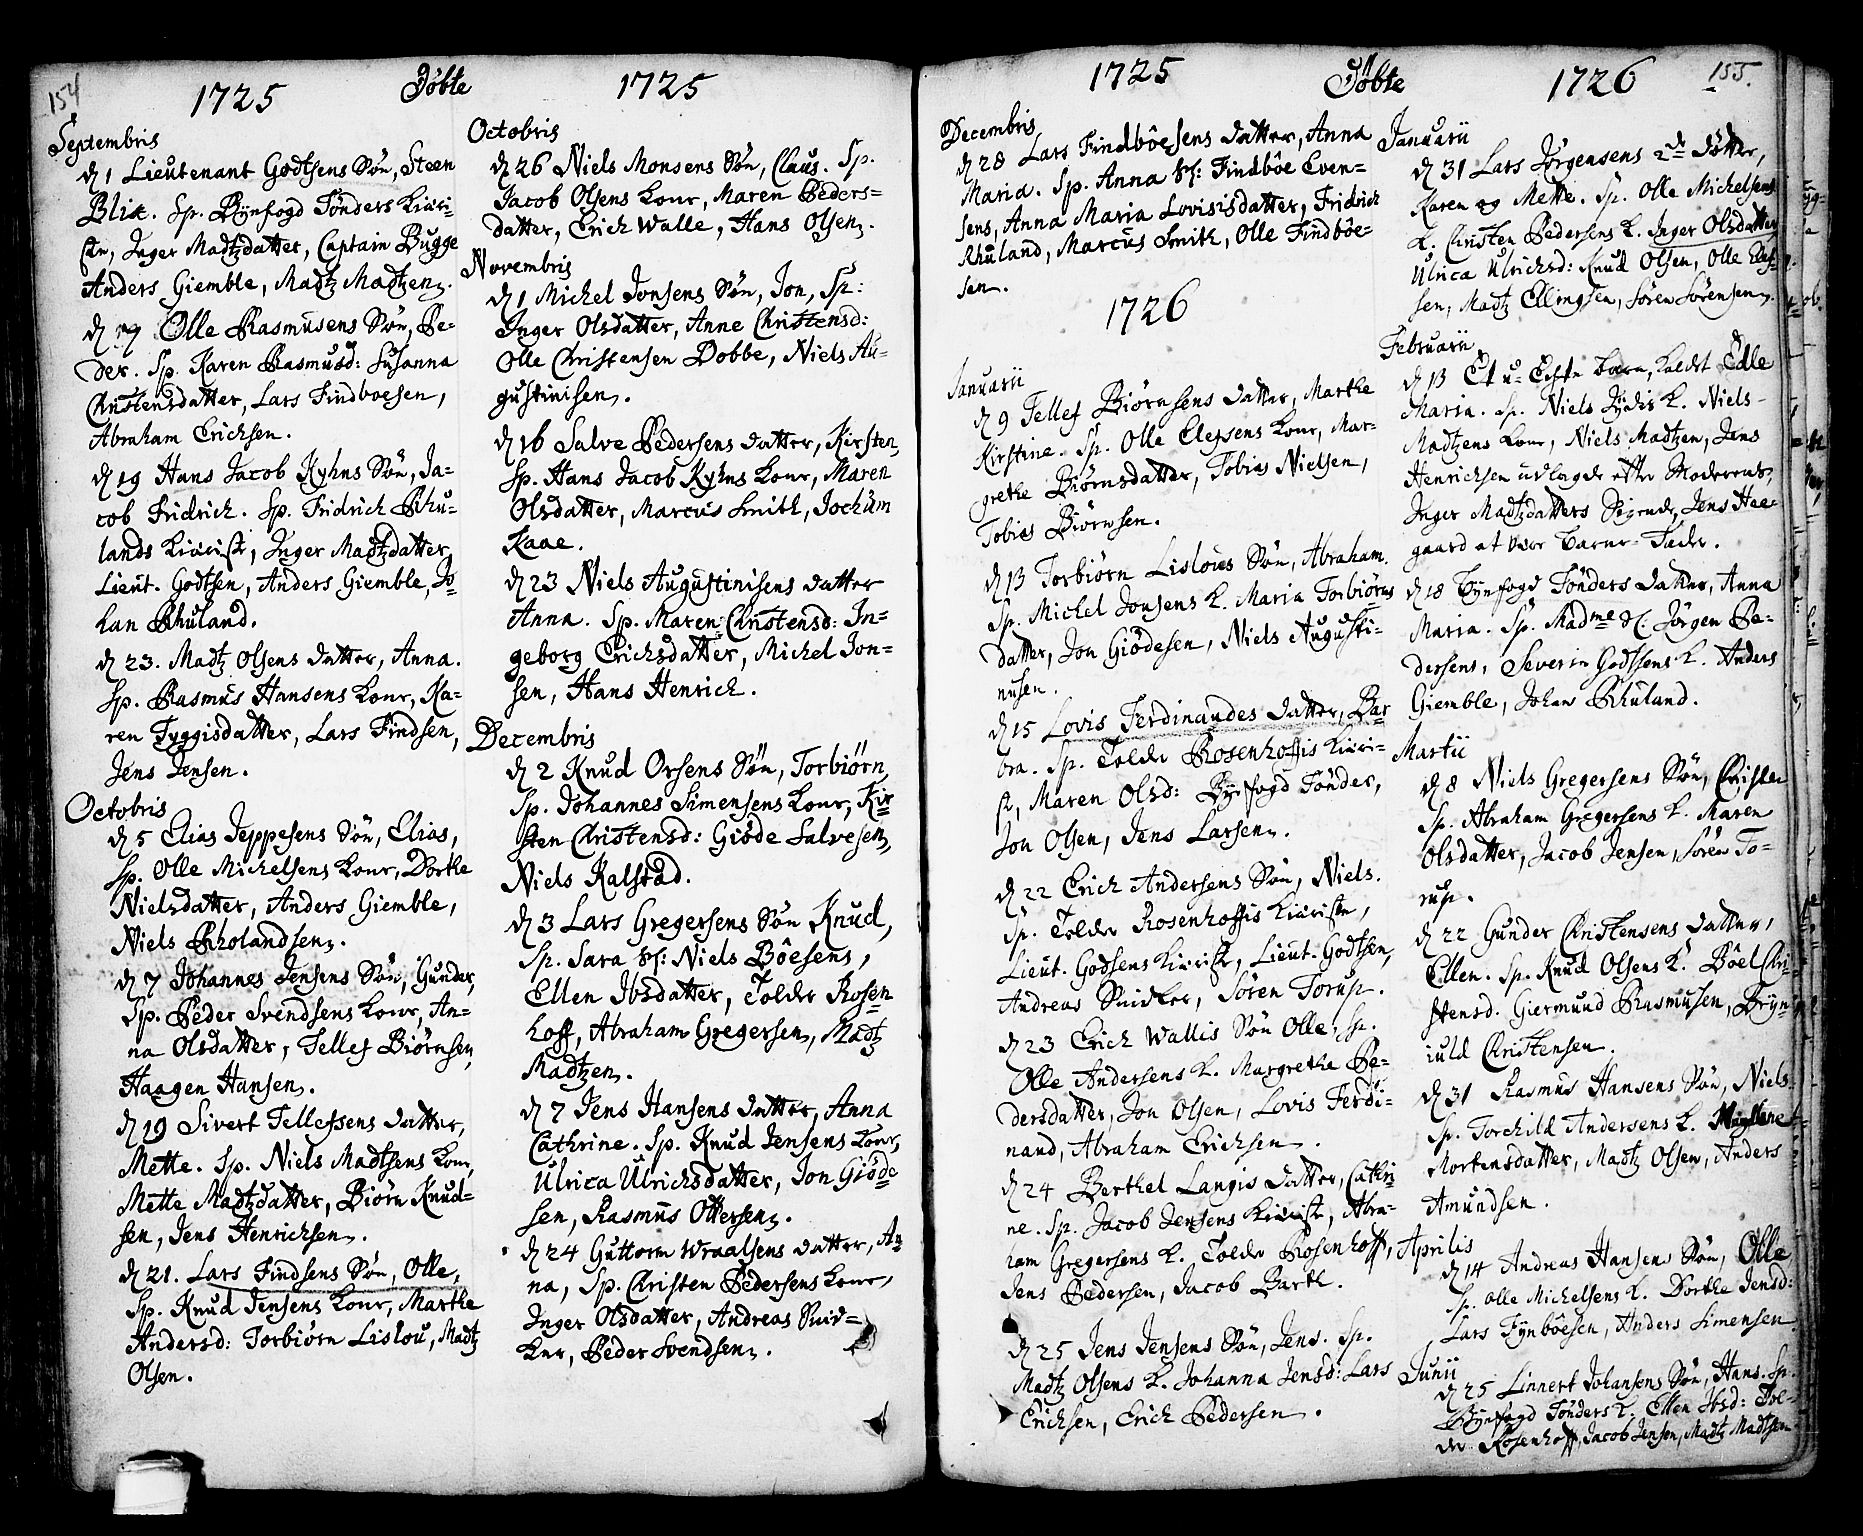 154
1725 Døbte 1725
Septembris
d. 1 Lieutenant Godtsens Søn, Steen
Blix. Sp. Byefogd Tønders Kiæri-
ste, Inger Madtzdatter, Captain Bugge
Anders Giemble, Madtz Madtzen.
d. Olle Rasmusens Søn, Pe-
der. Sp. Karen Rasmusd: Susanna
Christensdatter, Lars Findboesen,
Abraham Erichsen.
d. 19 Hans Jacob Kyhns Søn, Ja-
cob Fridrich. Sp. Fridrich Rhu-
lands Kiæriste, Inger Madtzdatter
Lieut. Godtsen, Anders Giemble, Jo-
han Rhuland.
d. 23. Madtz Olsens datter, Anna.
Sp. Rasmus Hansens Konr, Ka-
ren Tyggisdatter, Lars Findsen,
Jens Jensen.
Octobris
d. 5 Elias Jeppesens Søn, Elias,
Sp. Olle Michelsens Konr, Dorthe
Nielsdatter, Anders Giemble,
Niels Rholandsen.
d. 7 Johannes Jensens Søn, Gunder,
Sp. Peder Svendsens Konr, An-
na Olsdatter, Tellef Biørnsen,
Haagen Hansen.
d. 19 Sivert Tellefsens datter,
Mette. Sp. Niels Madtsens Konr,
Mette Madtzdatter, Biørn Knud-
sen, Jens Henrichsen.
d. 21. Lars Findsens Søn, Olle,
Sp. Knud Jensens Konr, Marthe
Andersd: Torbiørn Lislou, Madtz
Olsen.
Octobris
d. 26 Niels Monsens Søn, Claus. Sp.
Jacob Olsens Konr, Maren Peders-
datter, Erich Walle, Hans Olsen.
Novembris
d. 1 Michel Jonsens Søn, Jon, Sp:
Inger Olsdatter, Anne Christensd:
Olle Christensen Dobbe, Niels Au-
gustinisen.
d. 16 Salve Pedersens datter, Kirsten,
Sp. Hans Jacob Kyhns Konr, Maren
Olsdatter, Marcus Smith, Jochum
Kaae.
d. 23 Niels Augustinisens datter
Anna. Sp. Maren Christensd: In-
geborg Erichsdatter, Michel Jon-
sen, Hans Henrich.
Decembris
d. 2 Knud Orsens Søn, Torbiørn,
Sp. Johannes Simensens Konr, Kir-
sten Christensd: Giøde Salvesen,
Niels Kalstad.
d. 3 Lars Gregersens Søn Knud,
Sp. Sara Niels Bøesens,
Ellen Ibsdatter, Tolder Rosen-
hoff, Abraham Gregersen, Madtz
Madtzen.
d. 7 Jens Hansens datter, Anna
Cathrine. Sp. Knud Jensens Konr,
Ulrica Ulrichsdatter, Jon Giøde-
sen, Rasmus Ottersen.
d. 24 Guttorm Wraalsens datter, An-
na, Sp. Christen Pedersens Konr,
Inger Olsdatter, Andreas Snid-
ker, Peder Svendsen.
1725 Døbte 1726 155.
Decembris
d. 28 Lars Findbøesens datter, Anna
Maria. Sp. Anna Findbøe Even-
sens, Anna Maria Lovisisdatter, Fridrich
Rhuland, Marcus Smith, Olle Findbøe-
sen.
1726
Januarii
d. 9 Tellef Biørnsens datter, Marthe
Kirstine. Sp. Olle Elefsens Konr, Mar-
grethe Biørnsdatter, Tobias Nielsen,
Tobias Biørnsen.
d. 13 Torbiørn Lislous Søn, Abraham.
Sp. Michel Jonsens K. Maria Torbiørns
datter, Jon Giødesen, Niels Augusti-
nusen.
d. 15 Lovis Ferdinandes datter, Bar-
bra. Sp. Tolder Rosenhoffis Kiæri-
st, Maren Olsd: Byefogd Tønder,
Jon Olsen, Jens Larsen.
d. 22 Erich Andersens Søn, Niels.
Sp. Tolder Rosenhoffis Kiæriste,
Lieut. Godsens Kiæriste, Lieut. Godtsen,
Andreas Snidker, Søren Torup.
d. 23 Erich Wallis Søn Olle, Sp.
Olle Andersens K. Margrethe Pe-
dersdatter, Jon Olsen, Lovis Ferdi-
nand, Abraham Erichsen.
d. 24 Berthel Langis datter, Cathri-
ne. Sp. Jacob Jensens Kiæriste, Abra-
ham Gregersens K. Tolder Rosenhoff,
Jens Pedersen, Jacob Barth.
d. 25 Jens Jensens Søn, Jens. Sp.
Madtz Olsens K. Johanna Jensd: Lars
Erichsen, Erich Pedersen.
Januarii
d. 31 Lars Jørgensens 2de Døttre,
Karen og Mette. Sp. Olle Michelsens
K. Christen Pedersens K. Inger Olsdatter
Ulrica Ulrichsd: Knud Olsen, Olle Elef-
sen, Madtz Ellingsen, Søren Sørensen.
Februarii
d. 13 Et u-Echte barn, kaldt Edle
Maria. Sp. Niels Jydes K. Niels
Madtzens Konr, Niels Madtzen, Jens
Henrichsen udlagde efter Moderens,
Inger Madtzdatters Sigende, Jens Hee-
gaard at være Barne-Fader.
d. 18 Byefogd Tønders datter, Anna
Maria. Sp. Madme Jørgen Pe-
dersens, Severin Godtsens K. Anders
Giemble, Johan Rhuland.
Martii
d. 8 Niels Gregersens Søn, Christen
Sp. Abraham Gregersens K. Maren
Olsdatter, Jacob Jensen, Søren To-
rup.
d. 22 Gunder Christensens datter,
Ellen. Sp. Knud Olsens K. Bøel Chri-
stensd. Giermund Rasmusen, Bryn-
iuld Christensen.
d. 31 Rasmus Hansens Søn, Niels.
Sp. Torchild Andersens K.
Mortensdatter, Madtz Olsen, Anders
Amundsen.
Aprilis
d. 14 Andreas Hansens Søn, Olle
Sp. Olle Michelsens K. Dorthe Jensd:
Lars Fynbøesen, Anders Simensen
Junii
d. 25 Linnert Johansens Søn, Hans. Sp.
Byefogd Tønders K. Ellen Ibsd: Tol-
der Rosenhoff, Jacob Jensen, Madtz Madtsen